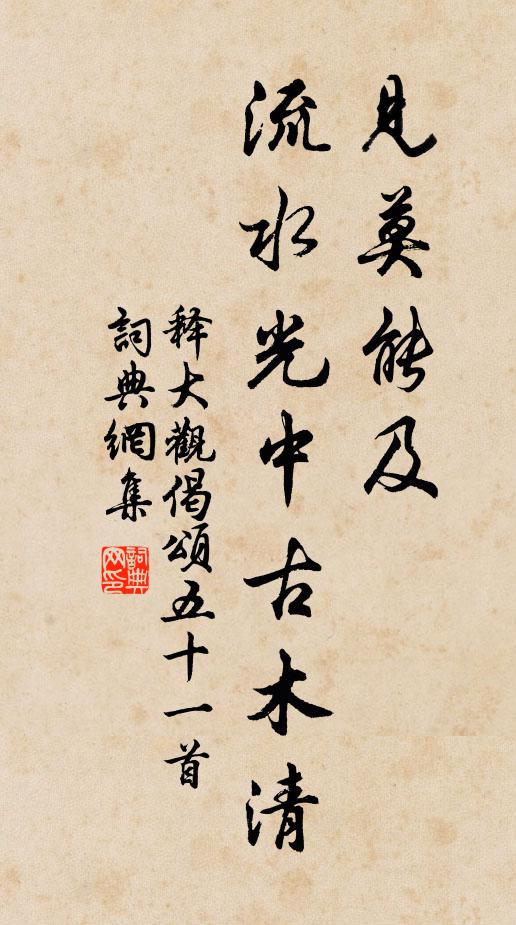 見莫能及
流水光中古木清
释大觀偈頌五十一首
詞典網集
詞典网印